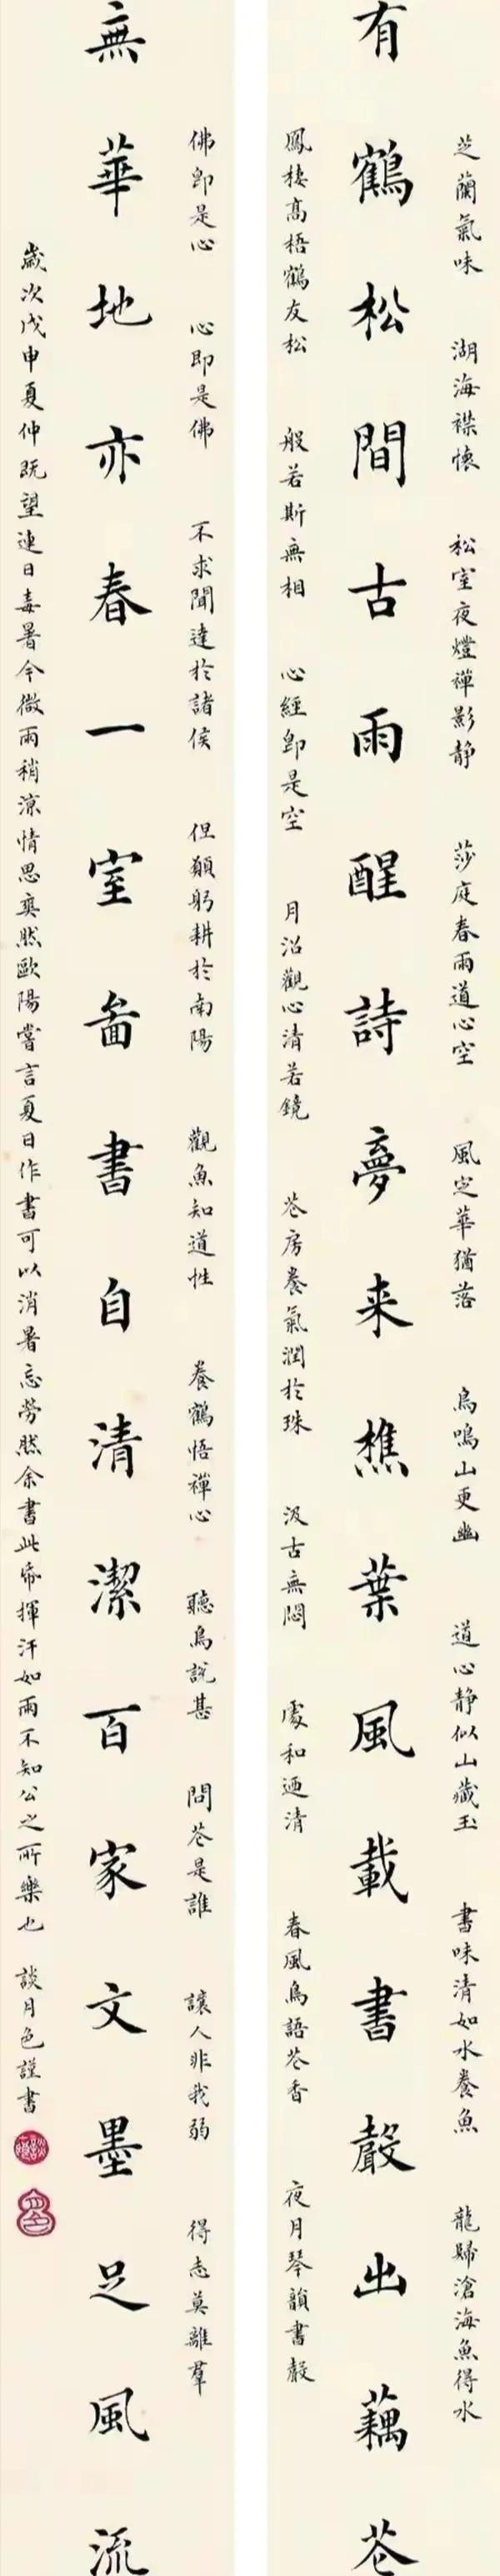 芝蘭氣味 湖海襟懷 松室夜燈禪影静 莎庭春雨道心空 風定華猶落 鳥鳴山更幽 道心静似山藏玉 書味清如水養魚 龍歸滄海魚得水
有鶴松間古雨醒詩夢来樵葉風載書聲出藕苍
鳳棲高梧鶴友松 般若斯無相 心經即是空 月沼觀心清若鏡 苍房養氣潤於珠 汲古無悶 處和迺清 春風鳥語苍香 夜月琴韻書聲
佛即是心 心即是佛 不求聞達於諸侯 但願躬耕於南陽 觀魚知道性 養鶴悟禪心 聽鳥說甚 問苍是誰 讓人非我弱 得志莫離羣
無華地亦春一室畵書自清潔百家文墨足風流
歲次戊申夏仲既望連日毒暑今微雨稍涼情思爽然歐陽嘗言夏日作書可以消暑忘勞然余書此帋揮汗如雨不知公之所樂也 談月色謹書